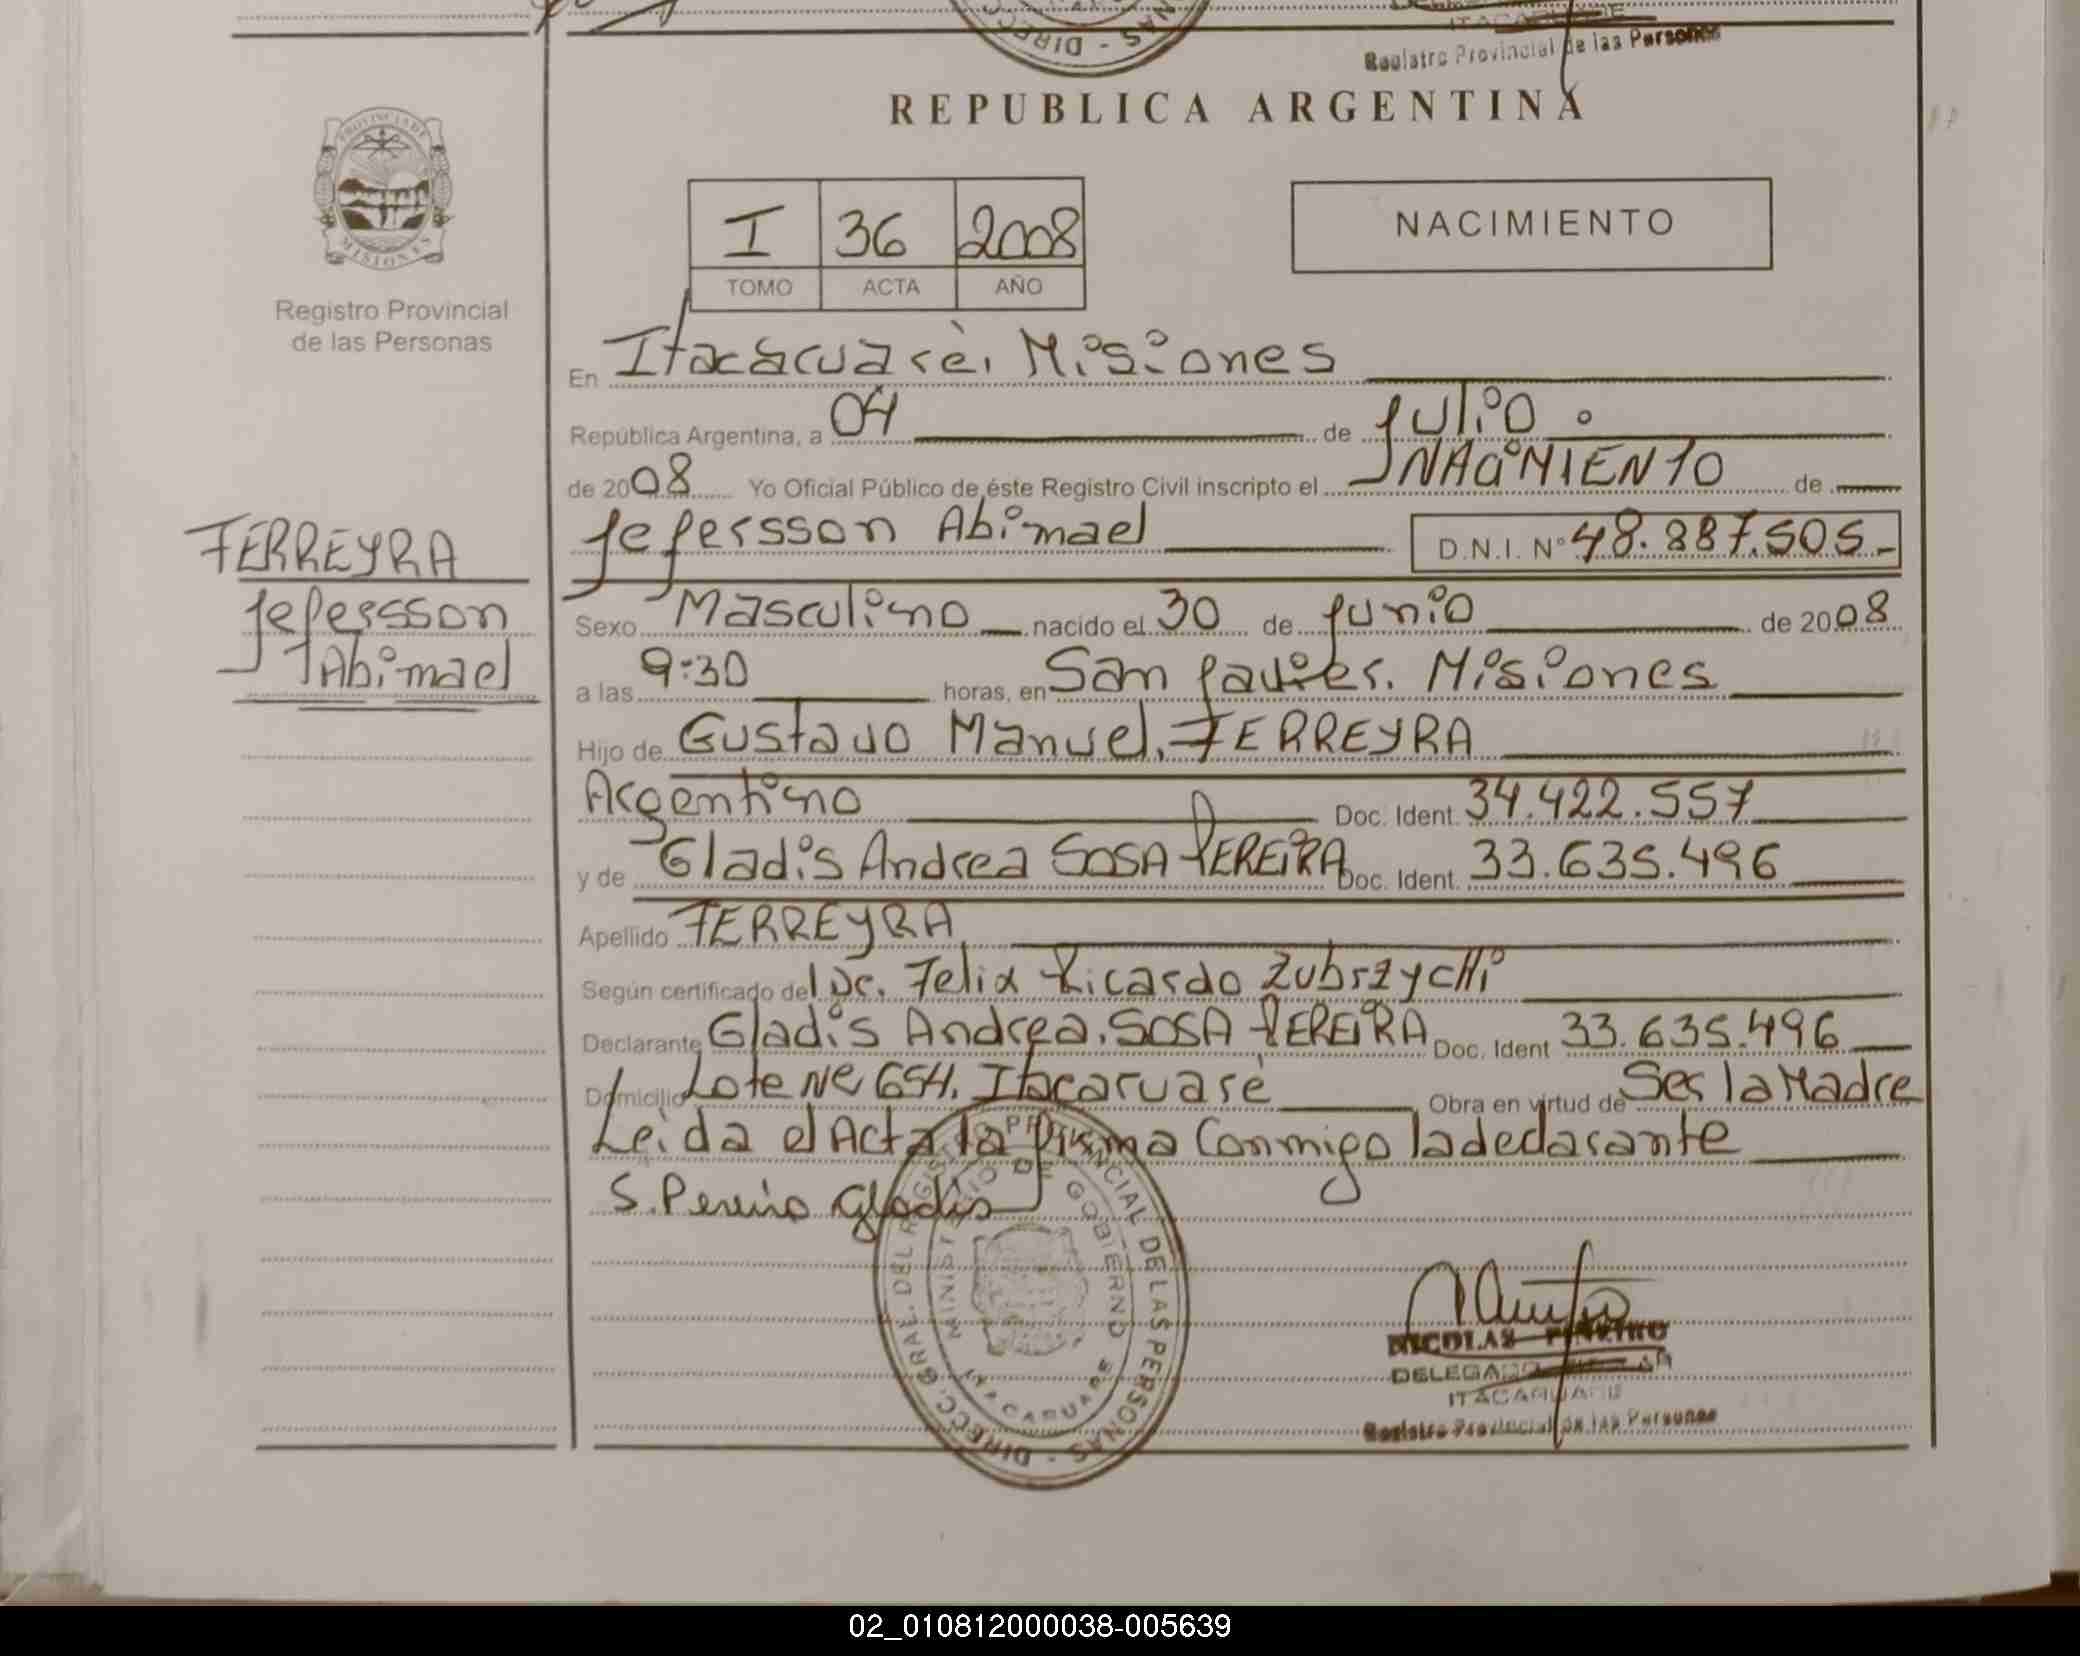 ITACARUARE
Registro Provincial de las Personas
DIRECC
NAS
REPUBLICA ARGENTINA
PROVINCIA DE
MISIONES
Registro Provincial
de las Personas
I 36 2008
TOMO ACTA AÑO
NACIMIENTO
En Itacacuarè, Misiones
República Argentina, a 04 de Julio
de 2008 Yo Oficial Público de éste Registro Civil inscripto el NACIMIENTO de
Jefersson Abimael D.N.I. Nº 48.887.505
FERREYRA
Jefersson
Abimael
Sexo Masculino nacido el 30 de Junio de 2008
a las 9:30 horas, en San Javier. Misiones
Hijo de Gustavo Manuel, FERREYRA
Argentino Doc. Ident. 34.422.557
y de Gladis Andrea SOSA PEREIRA Doc. Ident. 33.635.496
Apellido FERREYRA
Según certificado del Dr. Felix Ricardo Zubrzycki
Declarante Gladis Andrea. SOSA PEREIRA Doc. Ident 33.635.496
Domicilio Lote Nº 654. Itacaruaré Obra en virtud de Ser la Madre
Leida el Acta la Firma Conmigo la declarante
S. Pereira Gladis
DIRECC. GRAL. DEL REGISTRO PROVINCIAL DE LAS PERSONAS
MINISTERIO DE GOBIERNO
ITACARUARE
NICOLAS PIÑEIRO
DELEGADO
ITACARUARE
Registro Provincial de las Personas
02_010812000038-005639